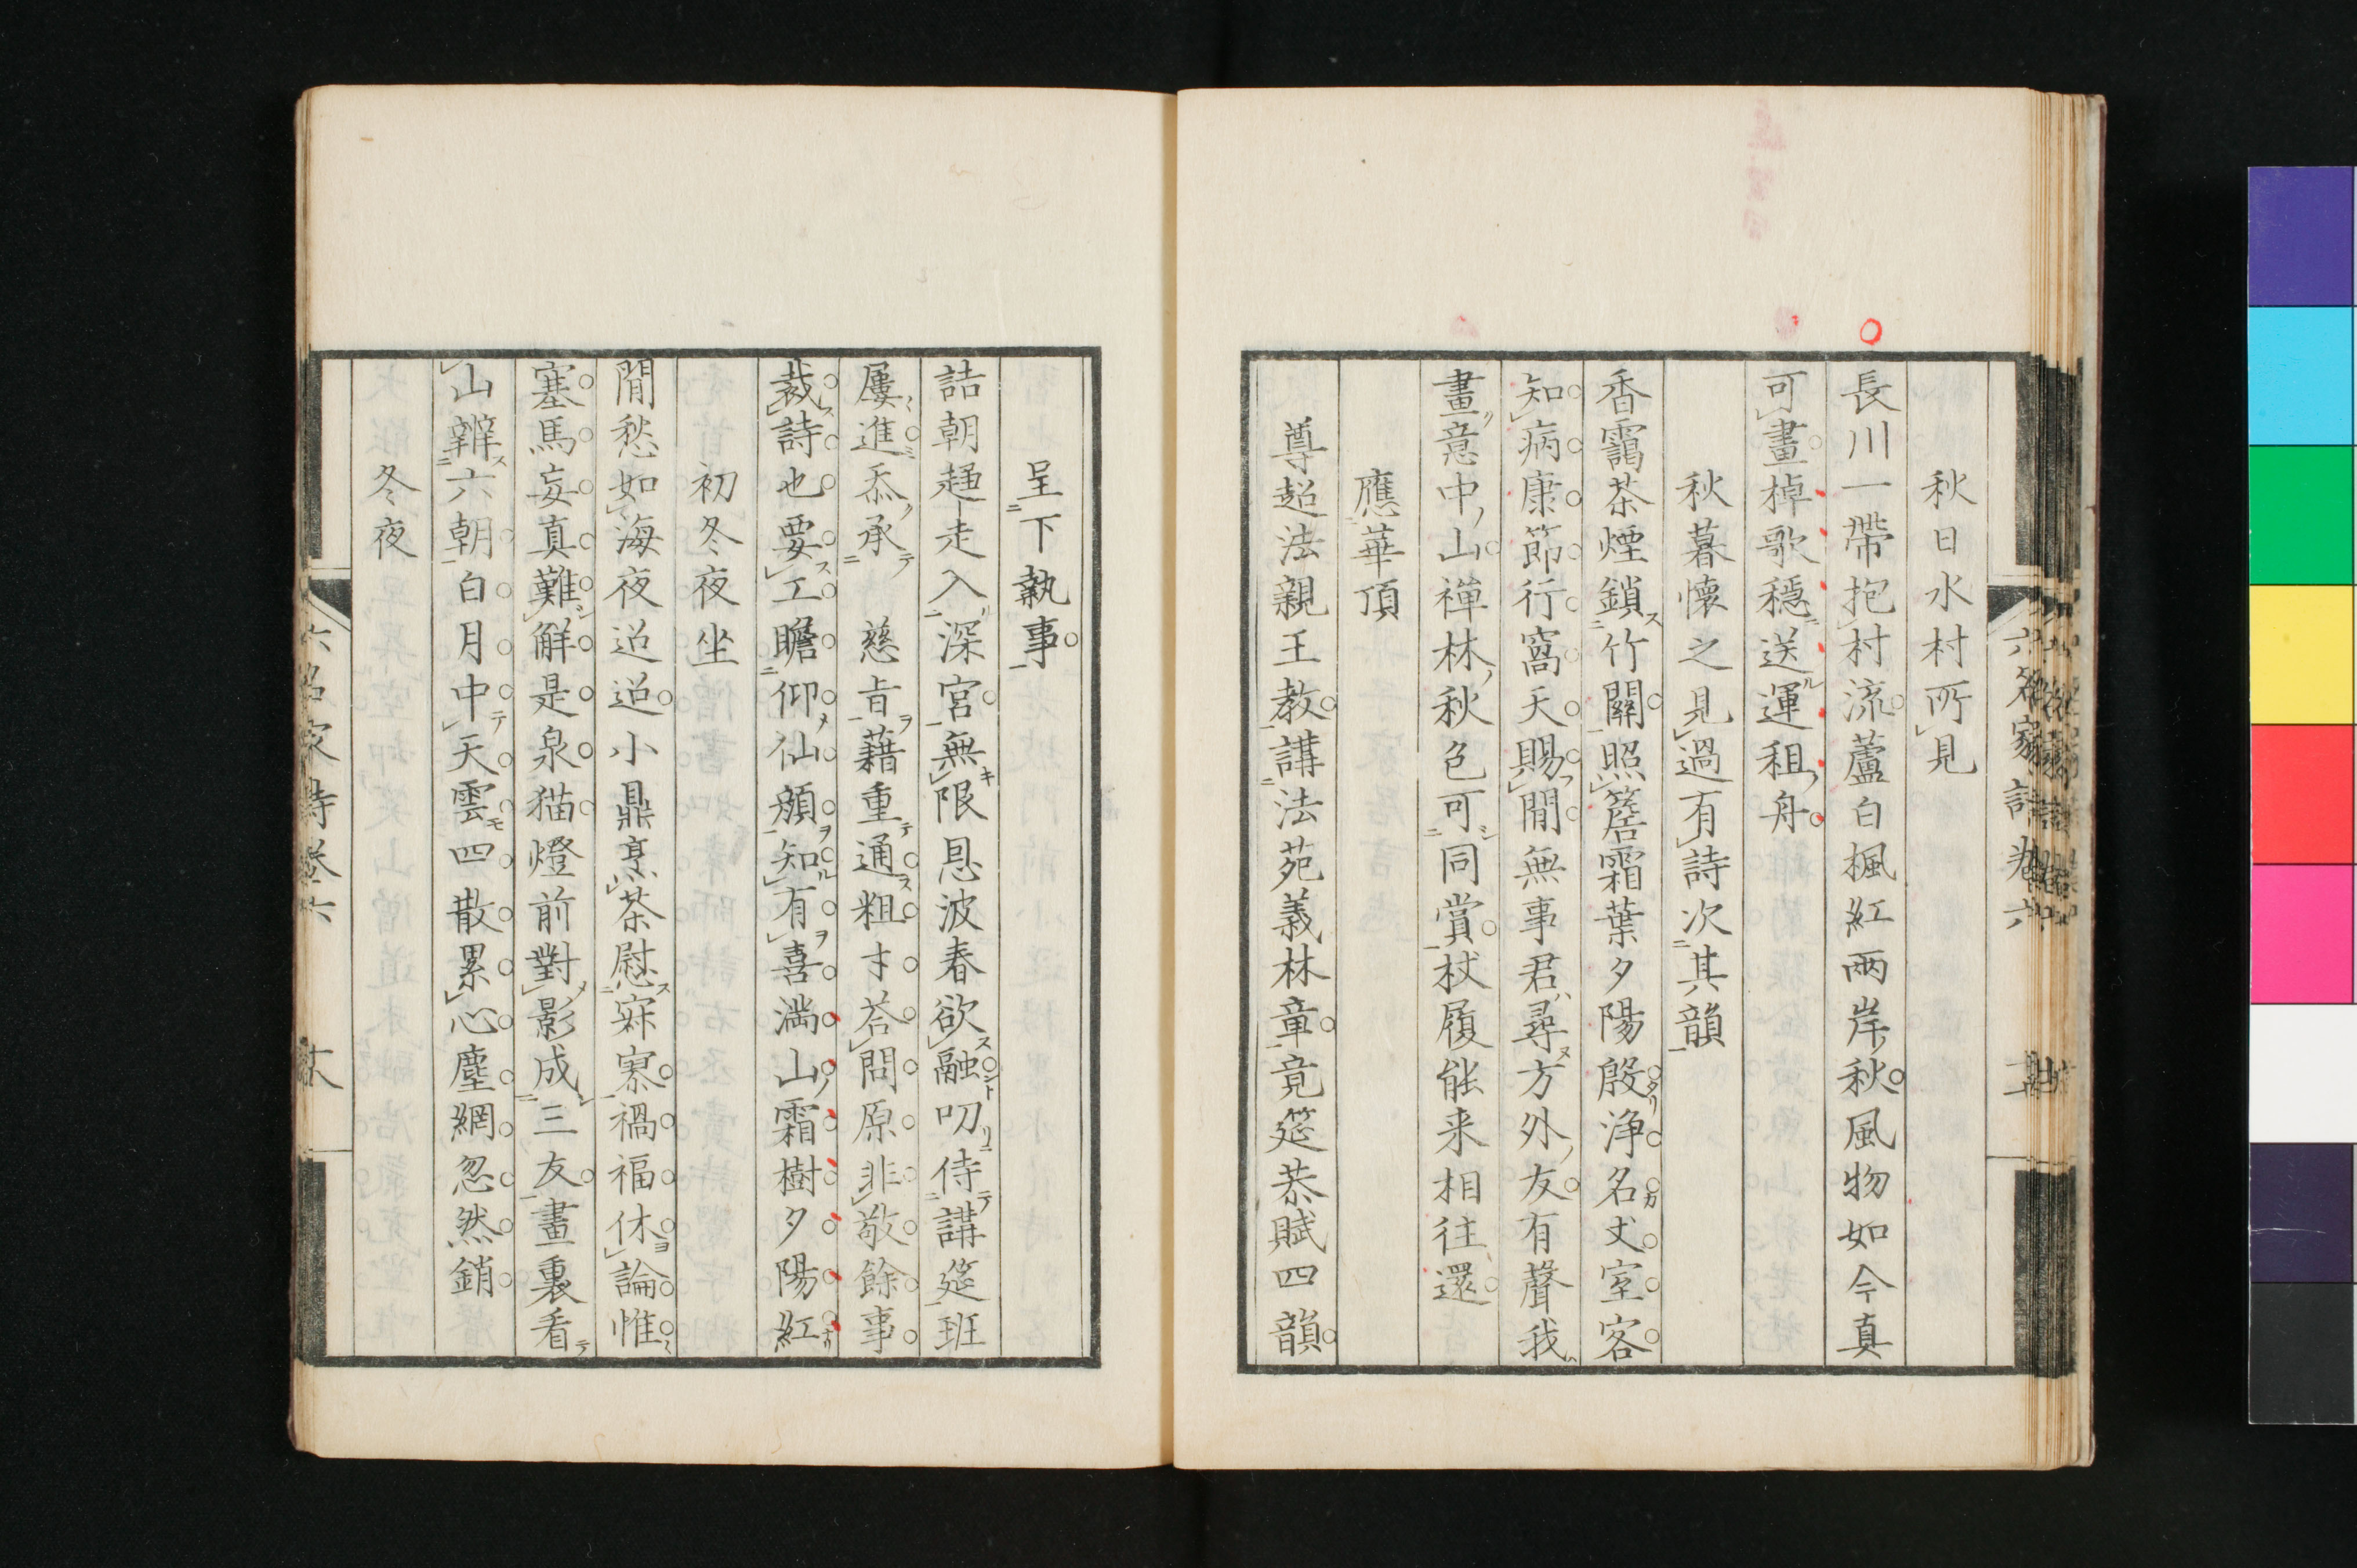 秋日水村所見
長川一帶抱村流蘆白楓紅兩岸秋風物如今真
可畫棹歌穩送運租舟
秋暮懷之見過有詩次其韻
香靄茶煙鎖竹關照簷霜葉夕陽殷浄名丈室客
知病康節行窩天賜閒無事君尋方外友有聲我
畫意中山禅林秋色可同賞杖履能来相往還
應華頂
尊超法親王教講法苑義林章竟筵恭賦四韻
呈下執事
詰朝趨走入深宮無限恩波春欲融叨侍講筵班
屢進忝承慈旨藉重通粗才荅問原非敬餘事
裁詩也要工瞻仰仙顔知有喜満山霜樹夕陽紅
初冬夜坐
閒愁如海夜迢迢小鼎烹茶慰寂寥禍福休論惟
塞馬妄真難解是泉猫燈前對影成三友畫裏看
山辨六朝白月中天雲四散累心塵網忽然銷
冬夜
六名家詩巻六